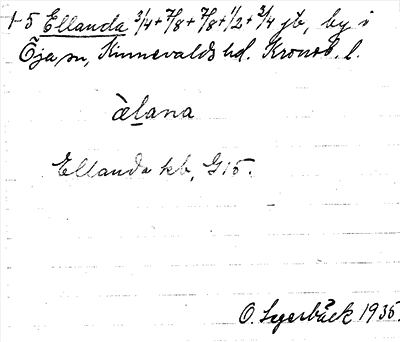 1-5 Ellanda 3/4+7/8+7/8+1/2+3/4 jb, by i
Öja sn, Kinnevalds hd. Kronob. l.
àlana
Ellanda kb, G15.
O. Lyerbäck 1935.